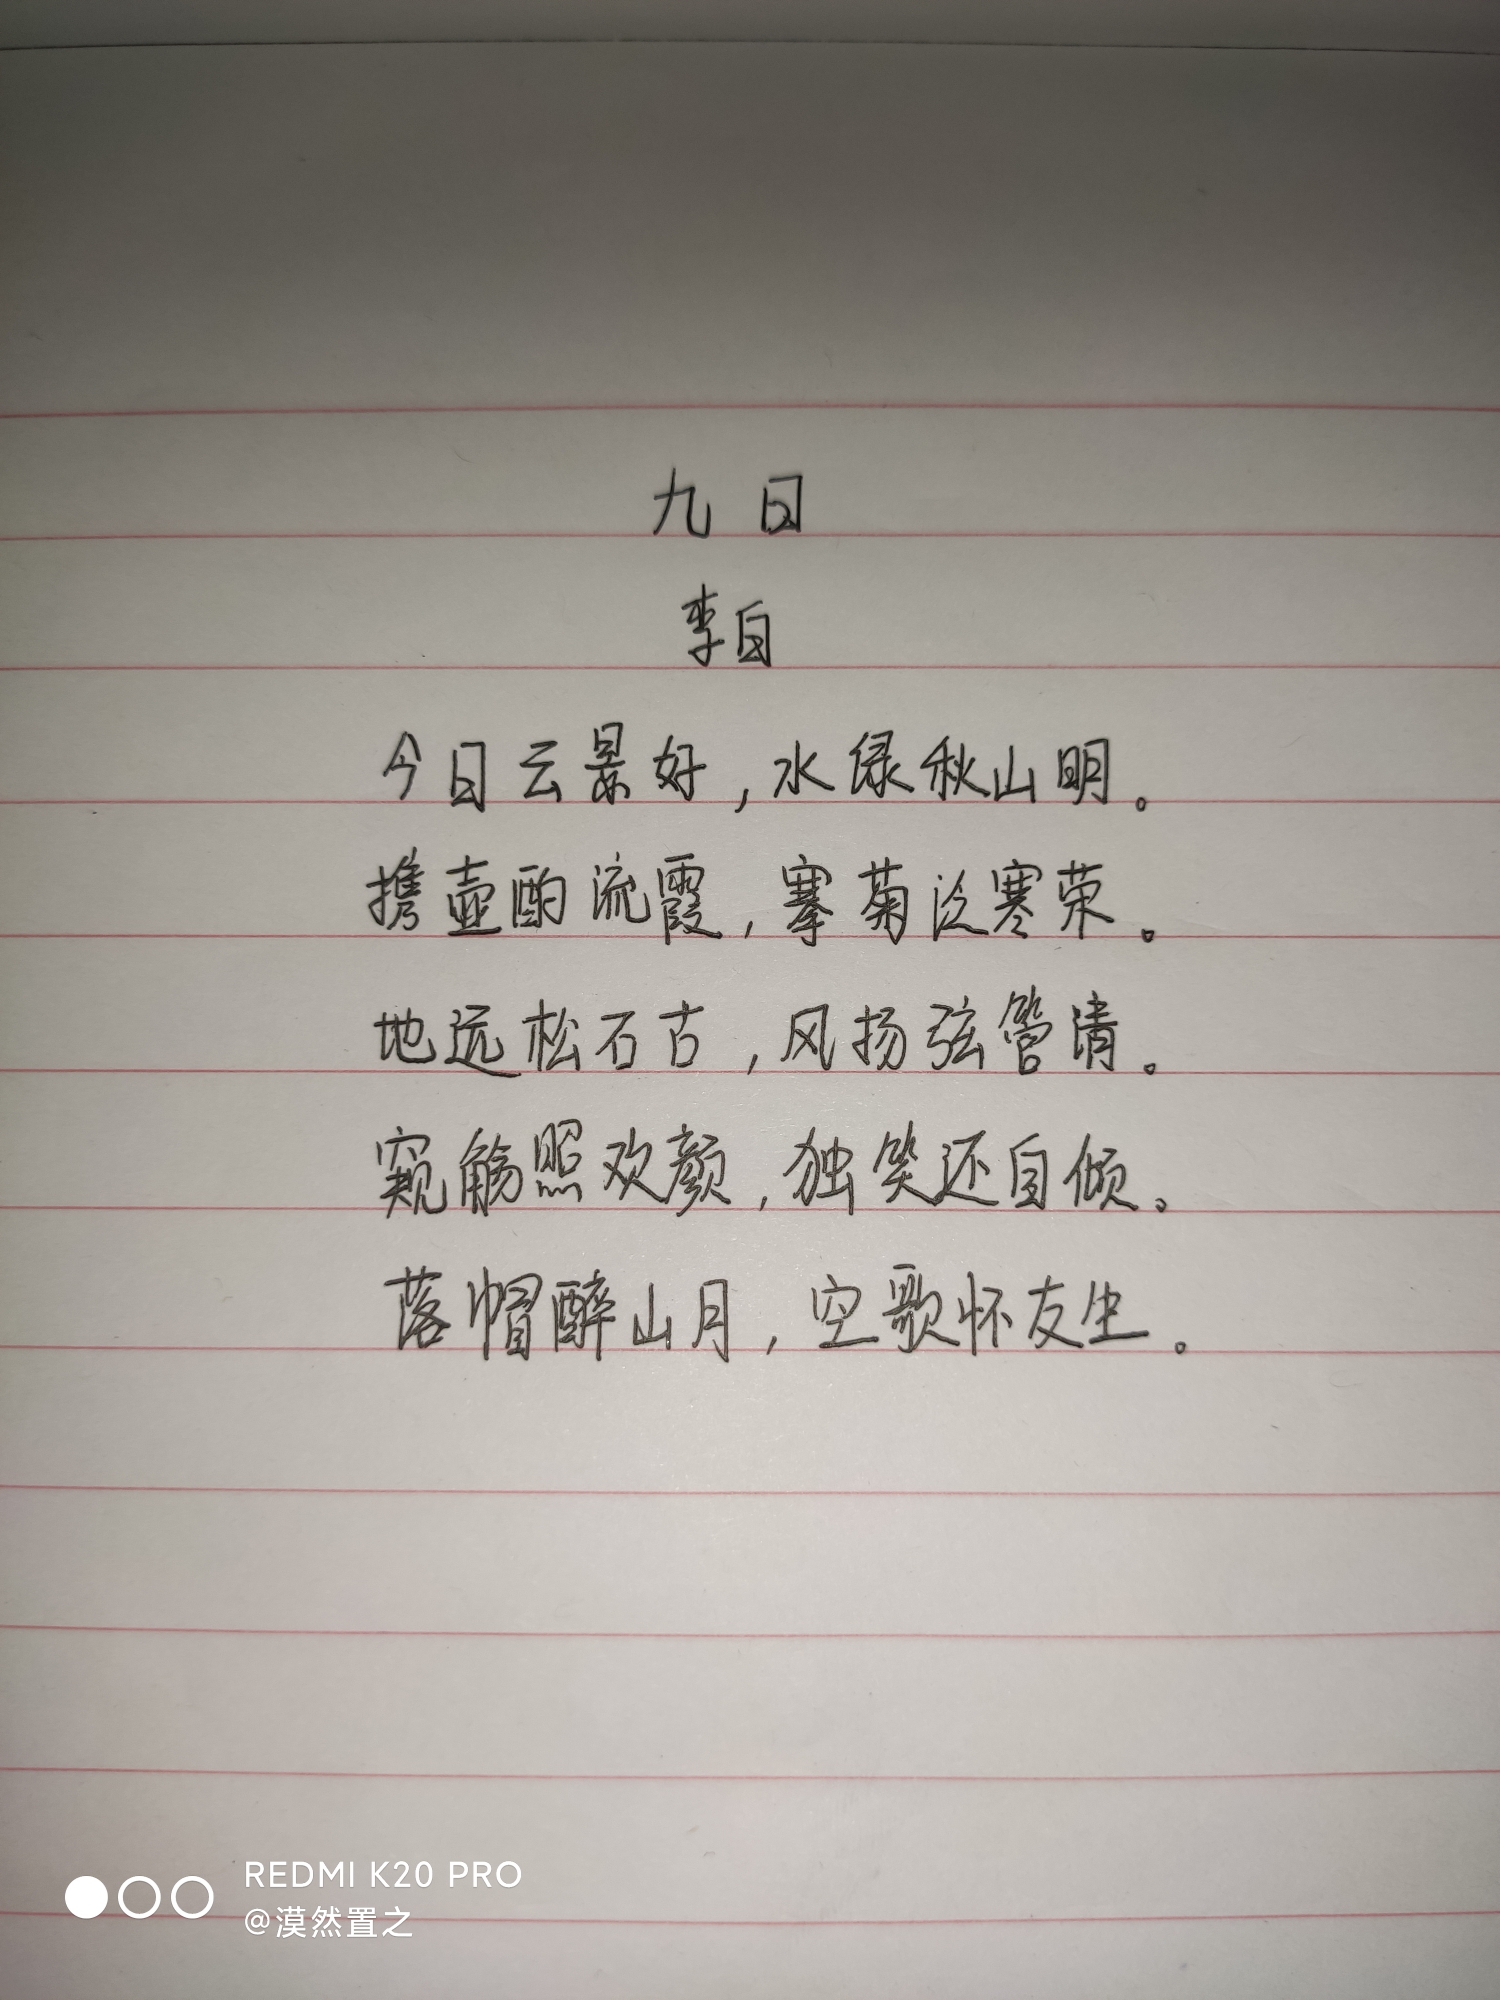 九日
李白
今日云景好，水绿秋山明。
携壶酌流霞，搴菊泛寒荣。
地远松石古，风扬弦管清。
窥觞照欢颜，独笑还自倾。
落帽醉山月，空歌怀友生。
REDMI K20 PRO
@漠然置之